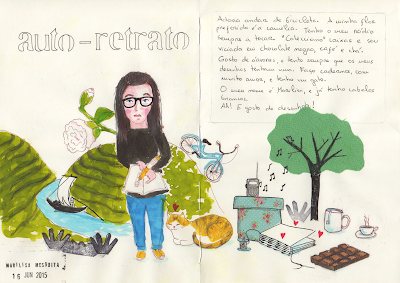 auto-retrato
Adoro andar de bicicleta. A minha flor
preferida é a camélia. Tenho o meu rádio
sempre a tocar. "Colecciono" caixas e sou
viciada em chocolate negro, café e chá.
Gosto de árvores, e tento sempre que os meus
desenhos tenham uma. Faço cadernos, com
muito amor, e tenho um gato.
O meu nome é Marilisa, e já tenho cabelos
brancos.
Ah! E gosto de desenhar!
MARILISA MESQUITA
16 JUN 2015